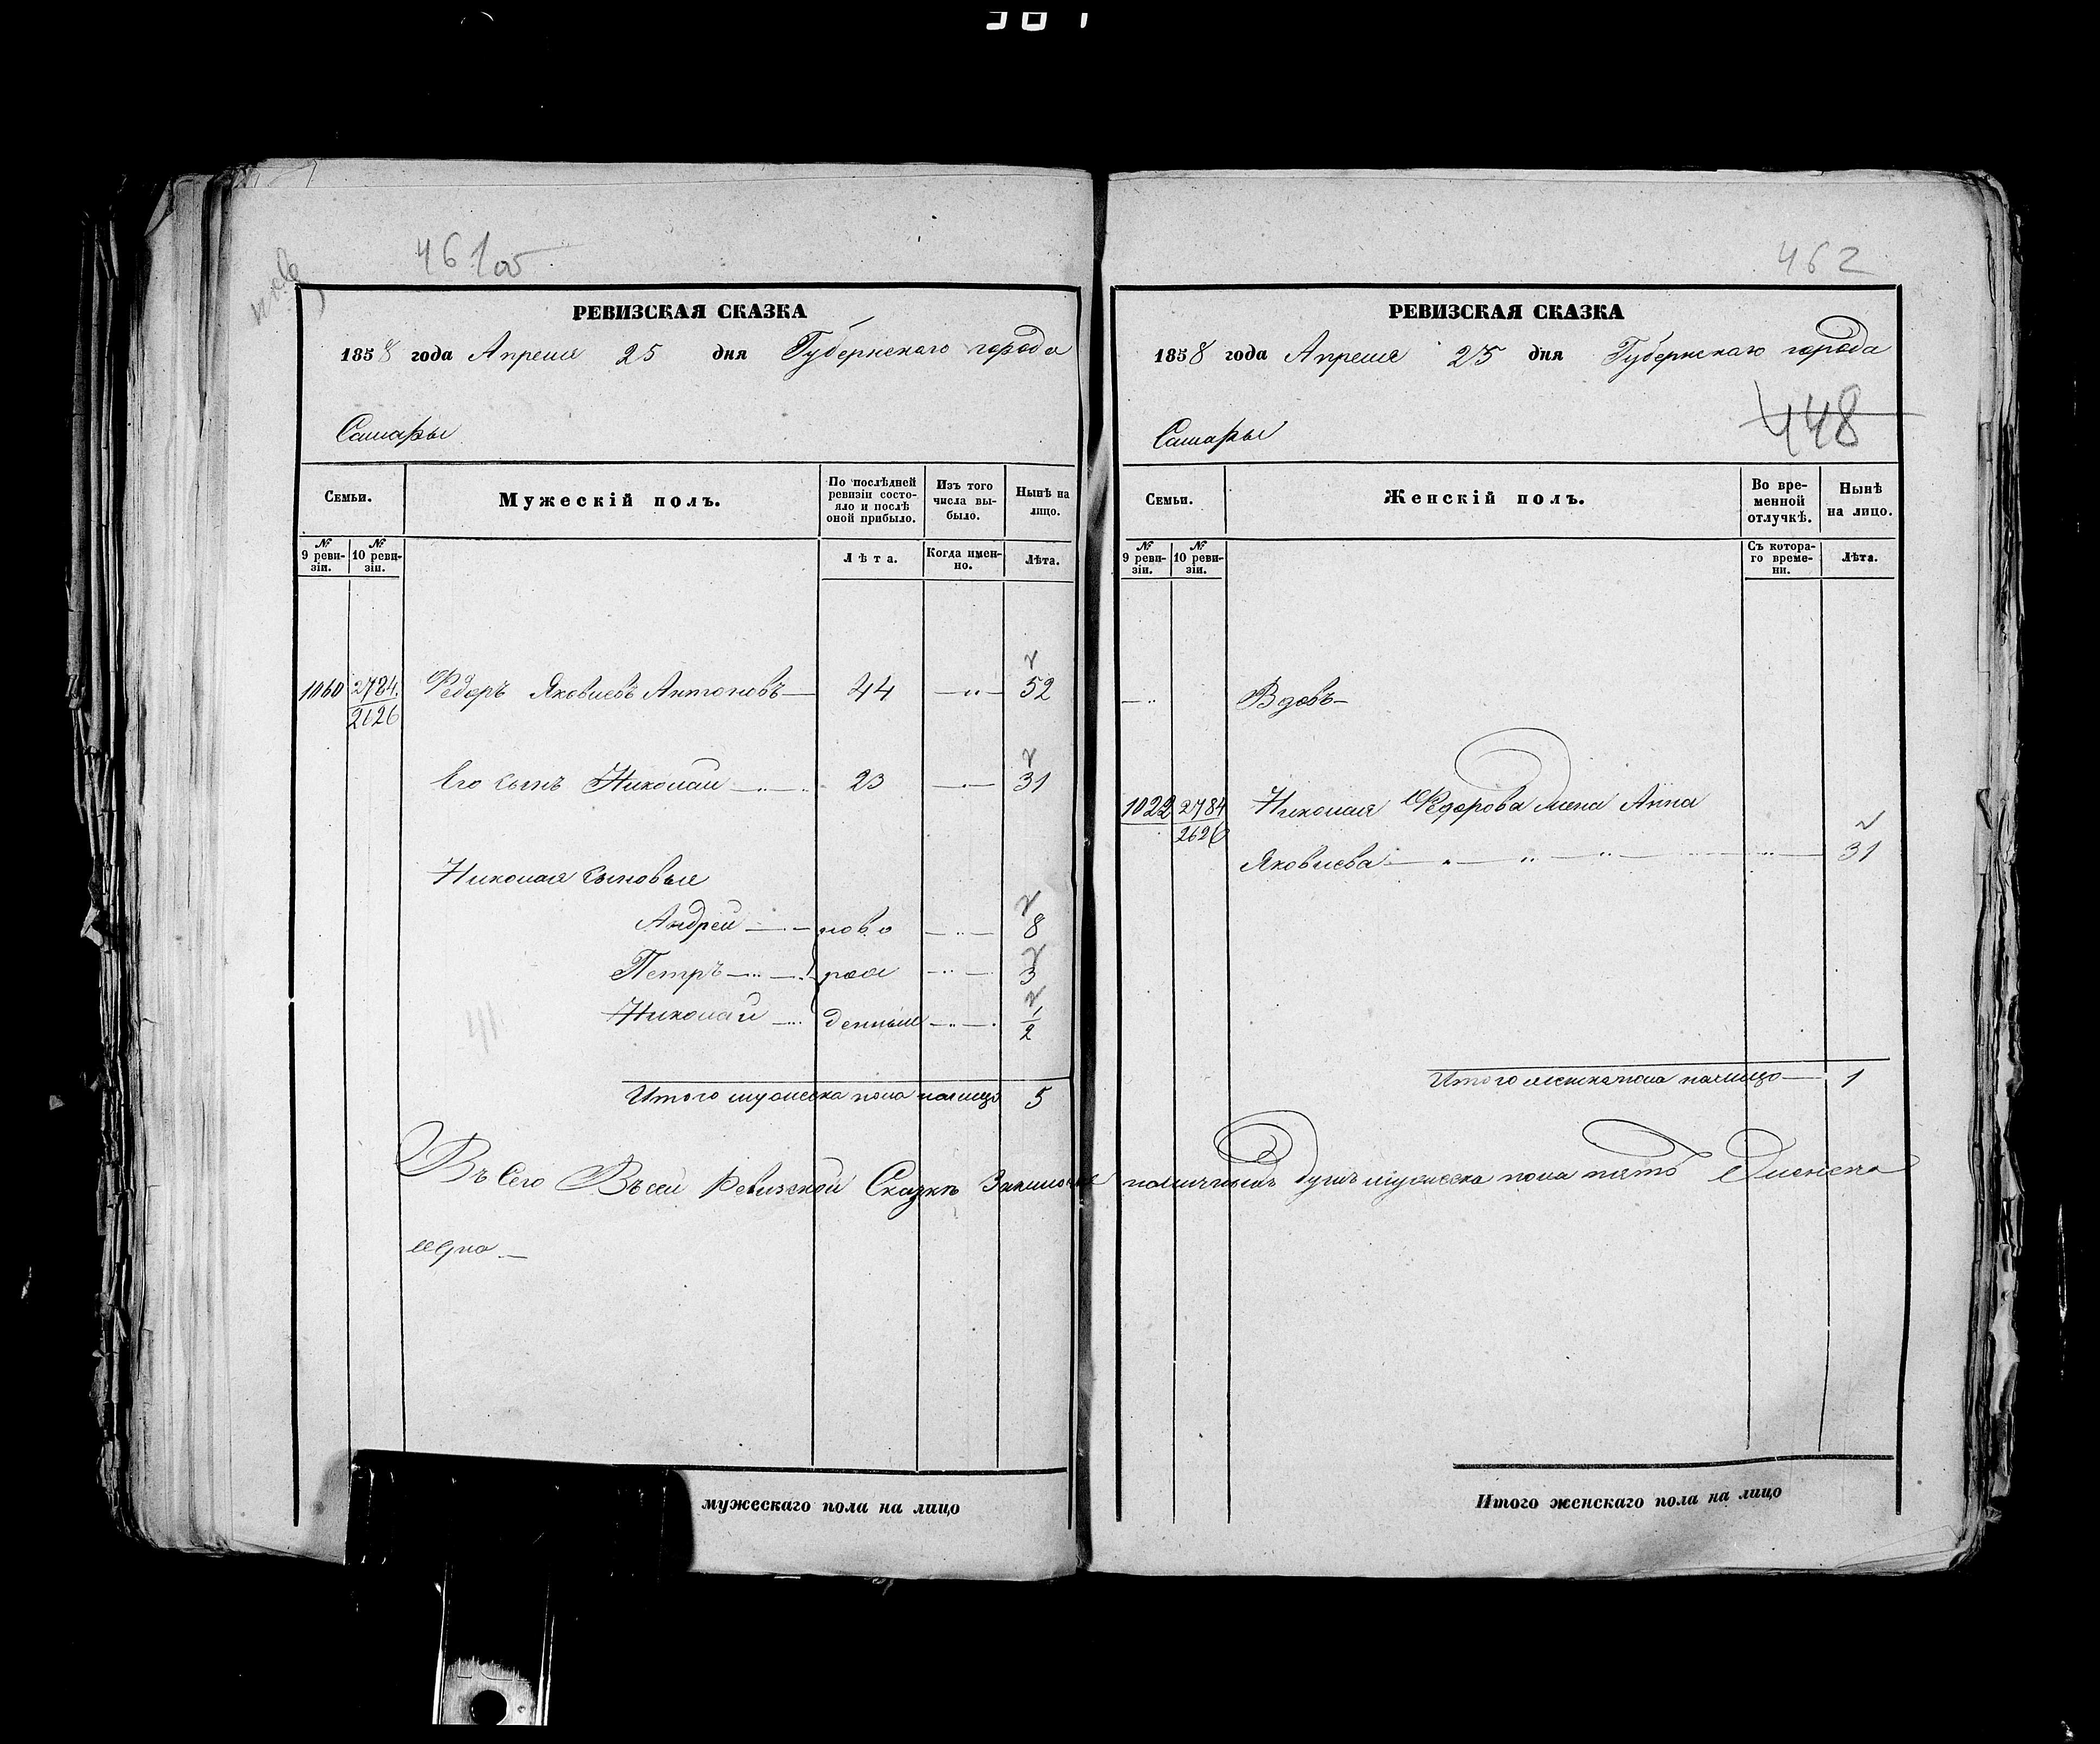 461об
РЕВИЗСКАЯ СКАЗКА
1858 года Апреля 25 дня Губернскаго города
Самары
Семьи.
Мужескій полъ.
По послѣдней ревизіи состояло и послѣ оной прибыло.
Изъ того числа выбыло.
Нынѣ на лицо.
№ 9 ревизіи.
№ 10 ревизіи.
Лѣта.
Когда именно.
Лѣта.
1060 2784. Федоръ Яковлевъ Антоновъ 44 52
2126
Его сынъ Николай 23 31
Николая сыновья
Андрей ново 8
Петръ рож 3
Николай денный 1/2
Итого мужеска пола налицо 5
Въсего Въсей Ревизской Сказкѣ наличныхъ душъ мужеска пола пять Женска
одна
мужескаго пола на лицо
462
РЕВИЗСКАЯ СКАЗКА
1858 года Апреля 25 дня Губернскаго города
448
Самары
Семьи.
Женскій полъ.
Во временной отлучкѣ.
Нынѣ на лицо.
№ 9 ревизіи.
№ 10 ревизіи.
Съ котораго времени.
Лѣта.
Вдовъ
1022 2784 Николая Федорова жена Анна
2626
Яковлева 31
Итого женска пола налицо 1
Итого женскаго пола на лицо